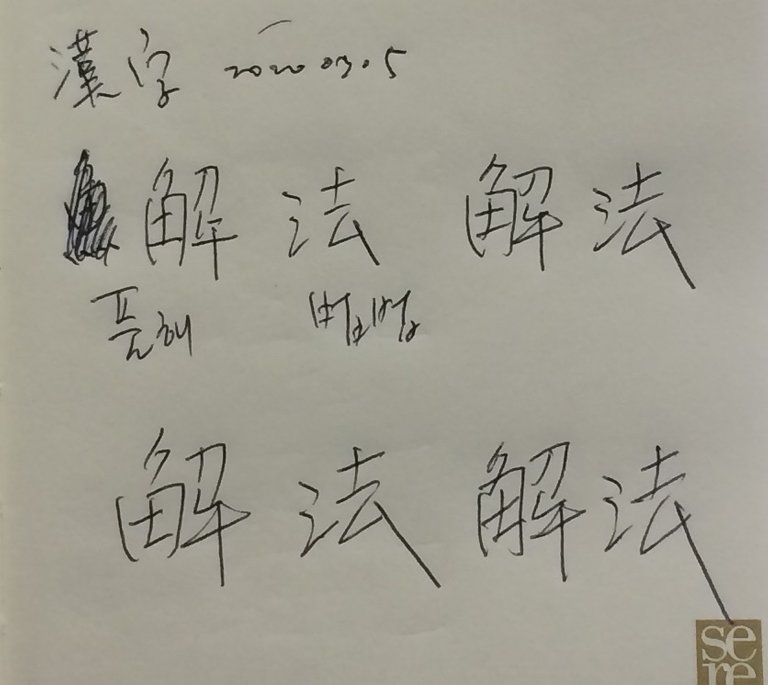 漢字 2020.03.5
解 法 解 法
풀해 법법
解 法 解 法
se
re